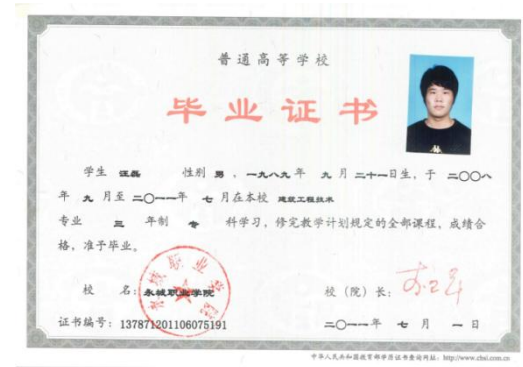 普通高等学校
毕业证书
学生 汪磊 性别 男 ，一九八九年 九 月 二十一日生，于 二〇〇八
年 九 月至 二〇一一年 七 月在本校 建筑工程技术
专业 三 年制 专 科学习，修完教学计划规定的全部课程，成绩合
格，准予毕业。
校 名：永城职业学院
校（院）长：
证书编号：137871201106075191
二〇一一年 七 月 一日
中华人民共和国教育部学历证书查询网址：http://www.chsi.com.cn